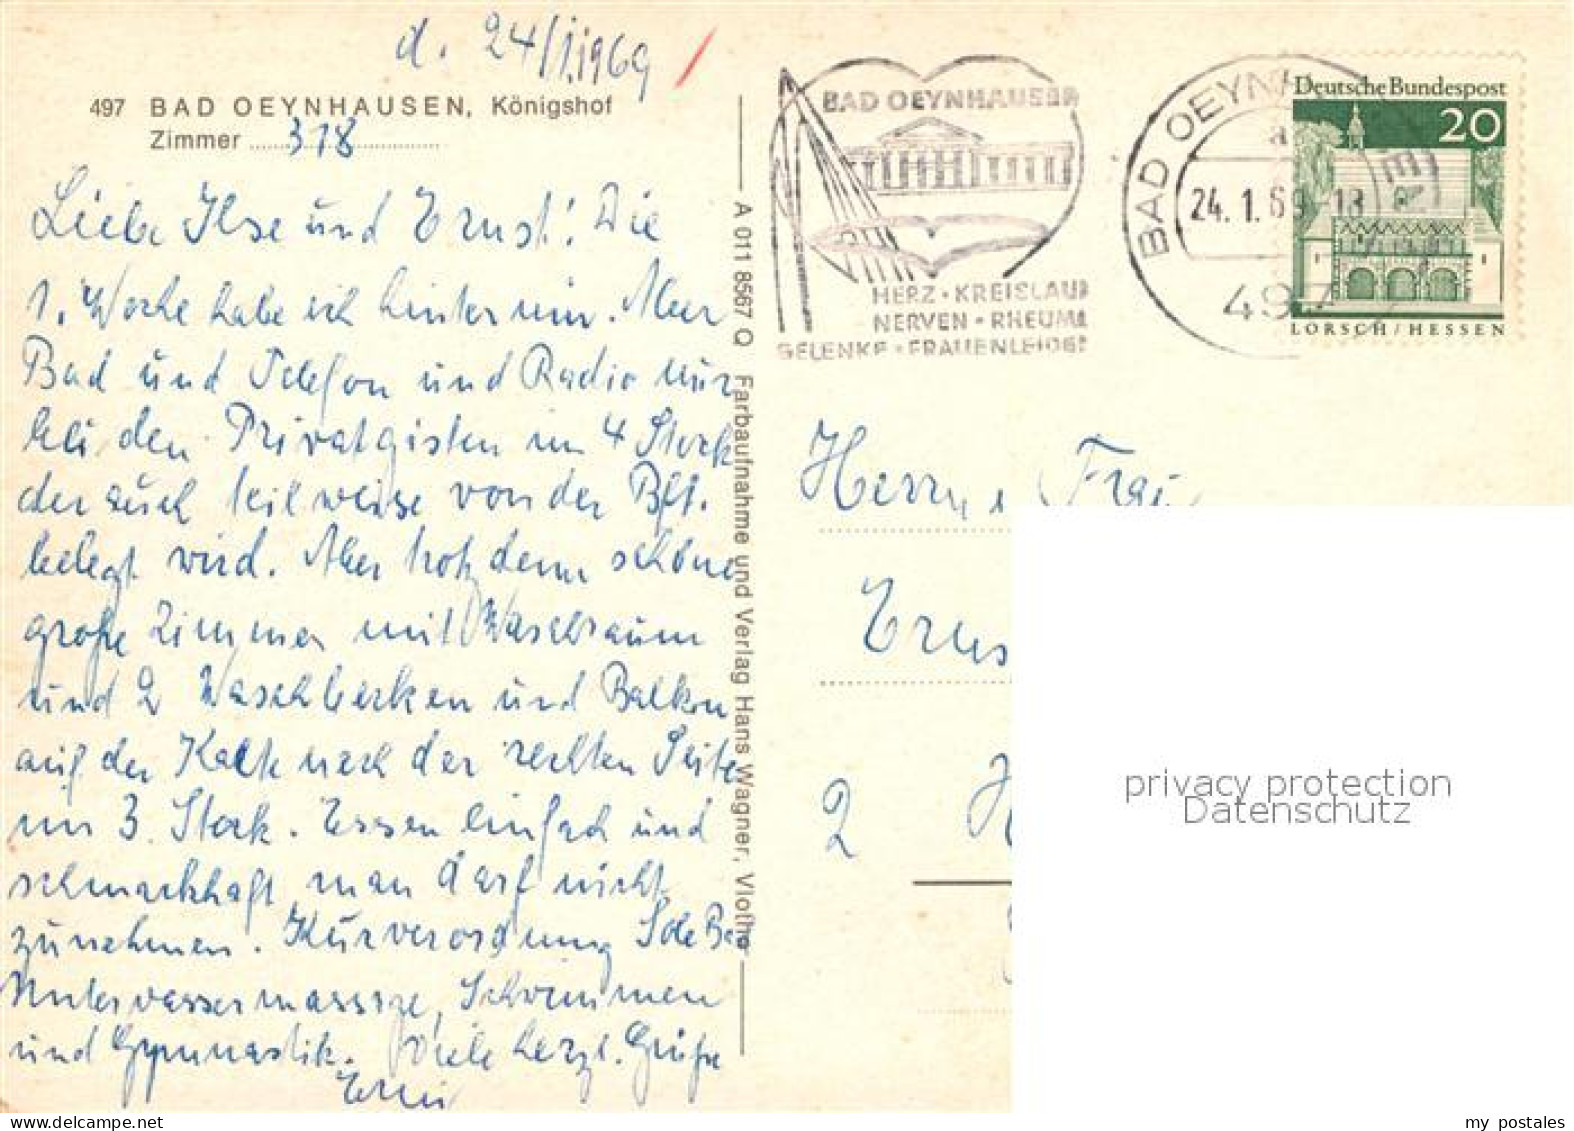 d. 24/1.1969
497 BAD OEYNHAUSEN, Königshof
Zimmer 318
Liebe Ilse und Ernst! Die
1. Woche habe ich hinter mir. Aber
Bad und Telefon und Radio nur
bei den Privatgästen im 4 Stock
der auch teilweise von der BfA.
belegt wird. Aber trotzdem schöne
große Zimmer mit Waschraum
und 2 Waschbecken und Balkon
auf der nach der rechten Seite
im 3. Stock. Essen einfach und
schmackhaft man darf nicht
zunehmen. Kurverordnung Sole Bad
Unterwassermassage, Schwimmen
und Gymnastik. Viele herzl. Grüße
A 011 8567 Q Farbaufnahme und Verlag Hans Wagner, Vlotho
BAD OEYNHAUSEN
HERZ · KREISLAUF
NERVEN · RHEUMA
GELENKE · FRAUENLEIDEN
BAD OEYNHAUSEN
a
24. 1. 69 - 18
497
Deutsche Bundespost
20
LORSCH/HESSEN
Herrn u Frau
Erns
2 H
privacy protection
Datenschutz
my postales